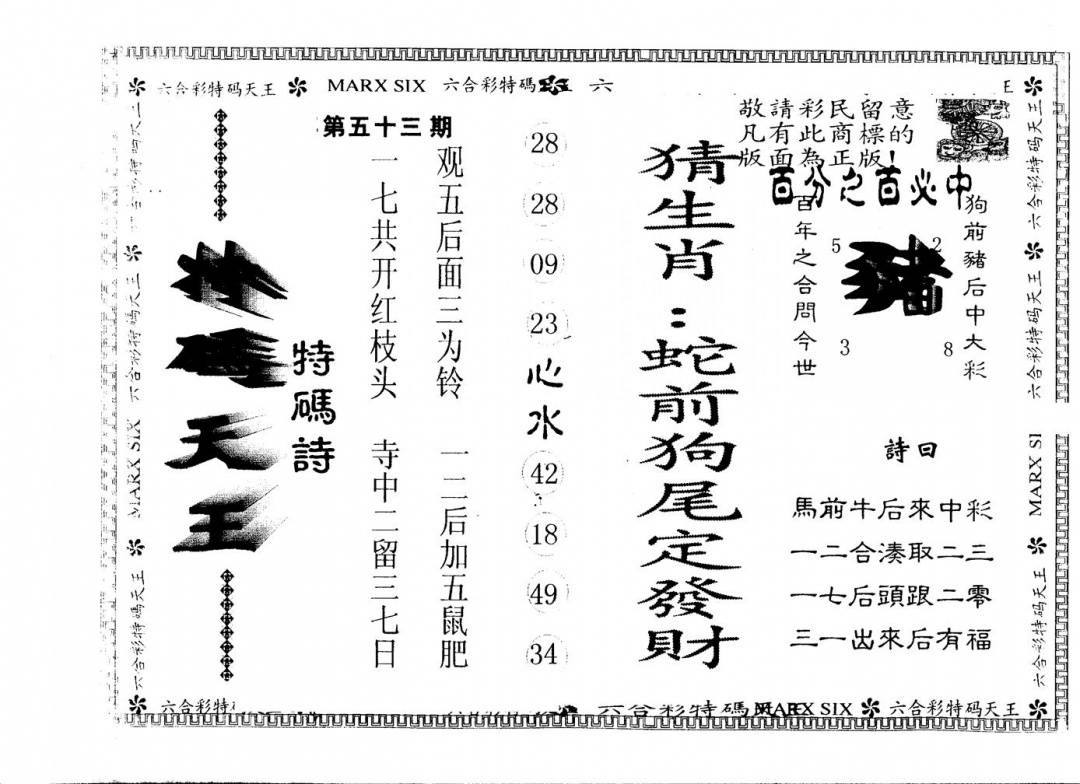 六合彩特码天王 MARX SIX 六合彩特碼 六
王
第五十三期
敬請彩民留意
凡有此商標的
版面為正版!
百分之百必中
狗前豬后中大彩
豬
5
2
3
8
百年之合問今世
詩曰
馬前牛后來中彩
一二合湊取二三
一七后頭跟二零
三一出來后有福
猜生肖:蛇前狗尾定發財
28
28
09
23
心水
42
18
49
34
观五后面三为铃
一二后加五鼠肥
一七共开红枝头
寺中二留三七日
特碼詩
特碼天王
六合彩特码天王
六合彩特码天王
六合彩特码天王
MARX SI
六合彩特码天王
六合彩特码天王
MARX SIX
六合彩特碼天王
六合彩特
六合彩特碼
MARX SIX 六合彩特码天王